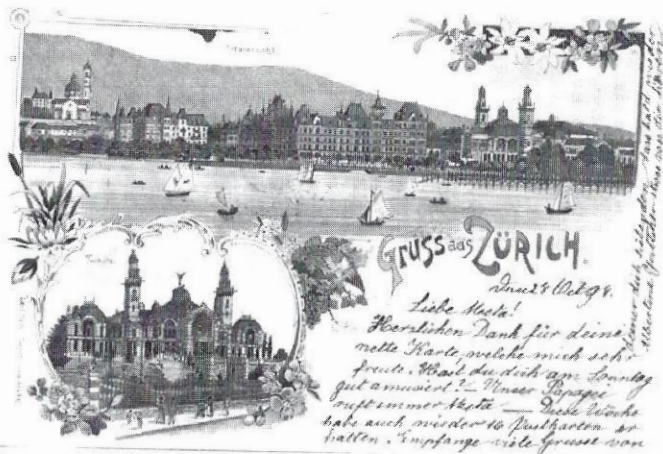 Totalansicht.
Gruss aus ZÜRICH.
Tonhalle
den 28 Oct 98.
Liebe Meta!
Herzlichen Dank für deine
nette Karte, welche mich sehr
freute. Hast du dich am Sonntag
gut amusiert? — Unser Papagei
ruft immer Meta — Diese Woche
habe auch wieder 16 Postkarten er
halten. Empfange viele Grüsse von